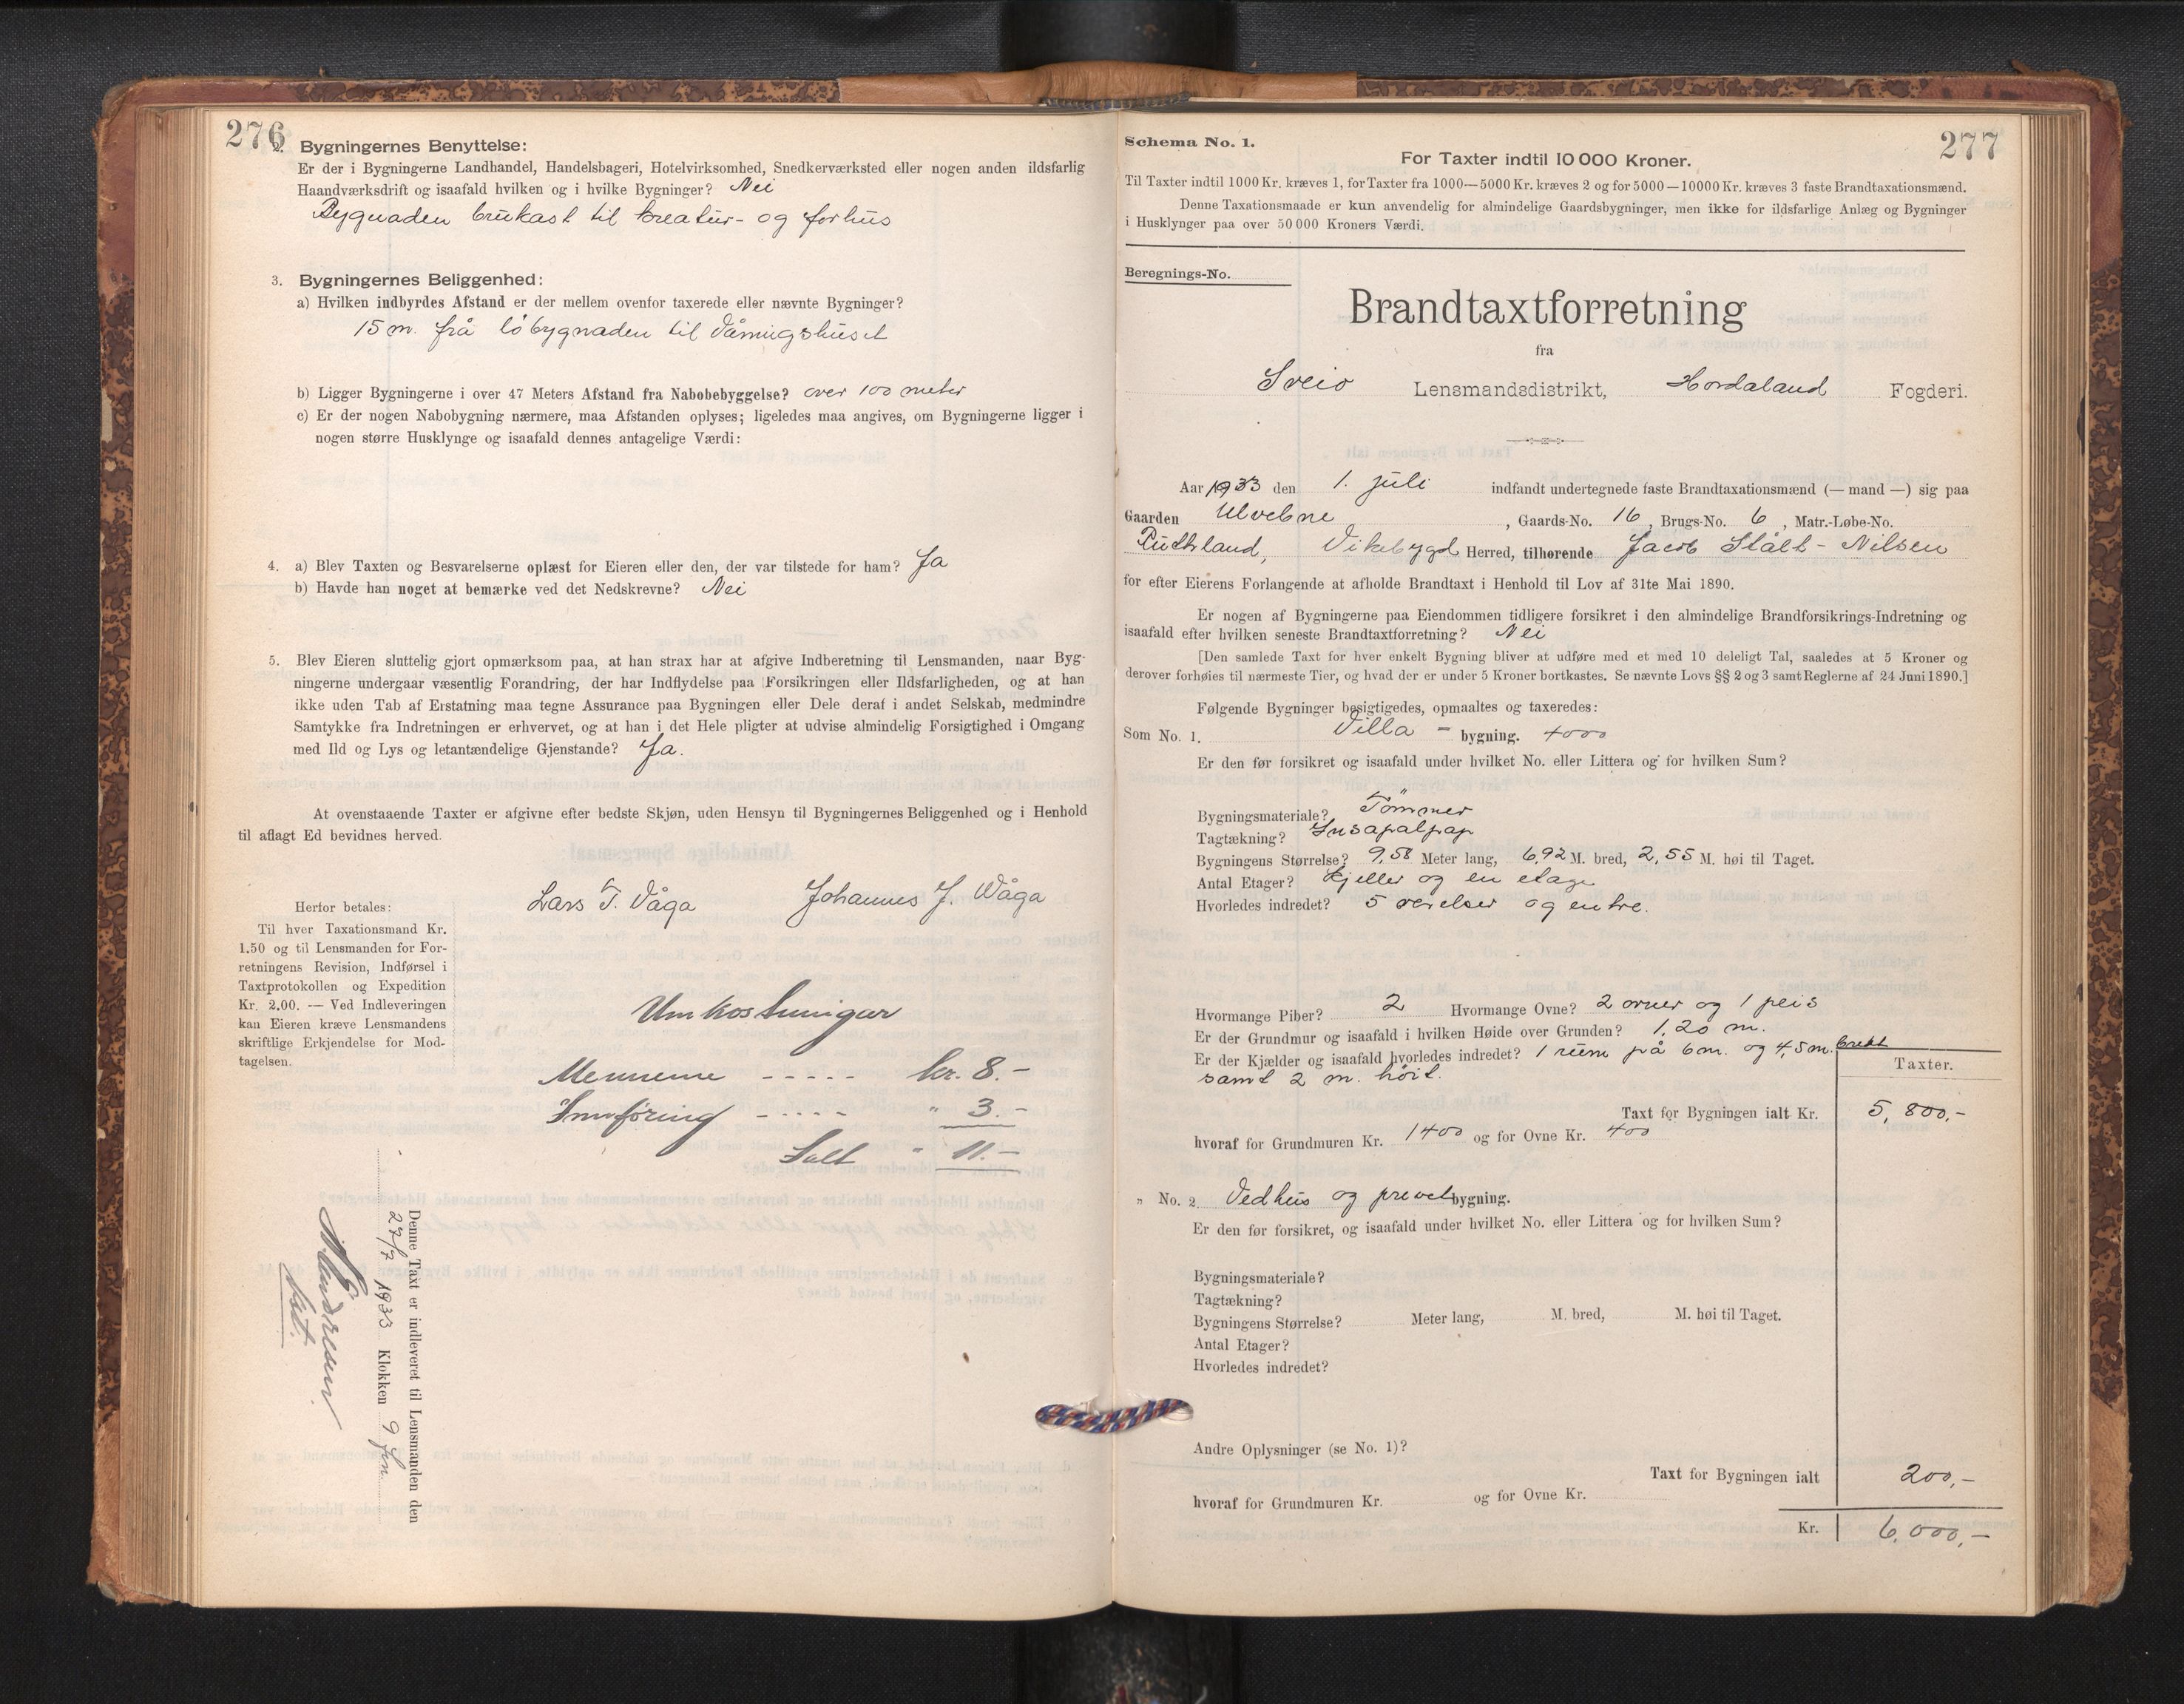 276
2. Bygningernes Benyttelse:
Er der i Bygningerne Landhandel, Handelsbageri, Hotelvirksomhed, Snedkerværksted eller nogen anden ildsfarlig
Haandværksdrift og isaafald hvilken og i hvilke Bygninger? Nei
Bygnaden brukast til kreatur- og forhus
3. Bygningernes Beliggenhed:
a) Hvilken indbyrdes Afstand er der mellem ovenfor taxerede eller nævnte Bygninger?
15 m. frå löbygnaden til våningshuset
b) Ligger Bygningerne i over 47 Meters Afstand fra Nabobebyggelse? over 100 meter
c) Er der nogen Nabobygning nærmere, maa Afstanden oplyses; ligeledes maa angives, om Bygningerne ligger i
nogen større Husklynge og isaafald dennes antagelige Værdi:
4. a) Blev Taxten og Besvarelserne oplæst for Eieren eller den, der var tilstede for ham? Ja
b) Havde han noget at bemærke ved det Nedskrevne? Nei
5. Blev Eieren sluttelig gjort opmærksom paa, at han strax har at afgive Indberetning til Lensmanden, naar Byg-
ningerne undergaar væsentlig Forandring, der har Indflydelse paa Forsikringen eller Ildsfarligheden, og at han
ikke uden Tab af Erstatning maa tegne Assurance paa Bygningen eller Dele deraf i andet Selskab, medmindre
Samtykke fra Indretningen er erhvervet, og at han i det Hele pligter at udvise almindelig Forsigtighed i Omgang
med Ild og Lys og letantændelige Gjenstande? Ja.
At ovenstaaende Taxter er afgivne efter bedste Skjøn, uden Hensyn til Bygningernes Beliggenhed og i Henhold
til aflagt Ed bevidnes herved.
Lars T. Våga Johannes J. Wåga
Herfor betales:
Til hver Taxationsmand Kr.
1.50 og til Lensmanden for For-
retningens Revision, Indførsel i
Taxtprotokollen og Expedition
Kr. 2.00. — Ved Indleveringen
kan Eieren kræve Lensmandens
skriftlige Erkjendelse for Mod-
tagelsen.
Umkostningar
Mennene ----- kr. 8.-
Innføring ----- " 3.-
Ialt " 11.-
Denne Taxt er indleveret til Lensmanden den
27/7 1933 Klokken 9 fm.
277
Schema No. 1.
For Taxter indtil 10 000 Kroner.
Til Taxter indtil 1000 Kr. kræves 1, for Taxter fra 1000—5000 Kr. kræves 2 og for 5000—10000 Kr. kræves 3 faste Brandtaxationsmænd.
Denne Taxationsmaade er kun anvendelig for almindelige Gaardsbygninger, men ikke for ildsfarlige Anlæg og Bygninger
i Husklynger paa over 50 000 Kroners Værdi.
Beregnings-No.
Brandtaxtforretning
fra
Sveio Lensmandsdistrikt, Hordaland Fogderi.
Aar 1933 den 1. juli indfandt undertegnede faste Brandtaxationsmænd (— mand —) sig paa
Gaarden Ulvebne, Gaards-No. 16, Brugs-No. 6, Matr.-Løbe-No.
Vikebygd Herred, tilhørende Jacob Stålt-Nilsen
for efter Eierens Forlangende at afholde Brandtaxt i Henhold til Lov af 31te Mai 1890.
Er nogen af Bygningerne paa Eiendommen tidligere forsikret i den almindelige Brandforsikrings-Indretning og
isaafald efter hvilken seneste Brandtaxtforretning? Nei
[Den samlede Taxt for hver enkelt Bygning bliver at udføre med et med 10 deleligt Tal, saaledes at 5 Kroner og
derover forhøies til nærmeste Tier, og hvad der er under 5 Kroner bortkastes. Se nævnte Lovs §§ 2 og 3 samt Reglerne af 24 Juni 1890.]
Følgende Bygninger besigtigedes, opmaaltes og taxeredes:
Som No. 1. Villa - bygning. 4000
Er den før forsikret og isaafald under hvilket No. eller Littera og for hvilken Sum?
Bygningsmateriale? Tömmer
Tagtækning?
Bygningens Størrelse? 9,58 Meter lang, 6,92 M. bred, 2,55 M. høi til Taget.
Antal Etager? kjeller og en etage
Hvorledes indredet? 5 verelser og entre.
Hvormange Piber? 2 Hvormange Ovne? 2 ovner og 1 peis
Er der Grundmur og isaafald i hvilken Høide over Grunden? 1,20 m.
Er der Kjælder og isaafald hvorledes indredet? 1 rum på 6 m. og 4,5 m. bredt
samt 2 m. höit.
Taxter.
Taxt for Bygningen ialt Kr. 5,800,-
hvoraf for Grundmuren Kr. 1400 og for Ovne Kr. 400
" No. 2 Vedhus og privet bygning.
Er den før forsikret, og isaafald under hvilket No. eller Littera og for hvilken Sum?
Bygningsmateriale?
Tagtækning?
Bygningens Størrelse? Meter lang, M. bred, M. høi til Taget.
Antal Etager?
Hvorledes indredet?
Andre Oplysninger (se No. 1)?
Taxt for Bygningen ialt 200,-
hvoraf for Grundmuren Kr. og for Ovne Kr.
Kr. 6,000,-